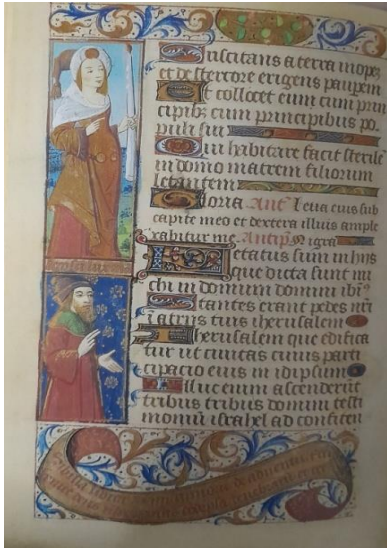 Suscitans a terra inope
et de stercore erigens paupem
Ut collocet eum cum prin
cipib; cum principibus po
puli sui
Qui habitare facit sterile
in domo matrem filiorum
letantem
Gloria Ant Leva eius sub
capite meo et dextera illius ample
xabitur me Antiph Nigra
Letatus sum in hijs
que dicta sunt mi
chi in domum domini ibiꝰ
Stantes erant pedes nr̄i
atriis tuis iherusalem
Iherusalem que edifica
tur ut civitas cuius parti
cipacio eius in idipsum
Illuc enim ascenderūt
tribus tribus domini testi
moniū israhel ad confiten